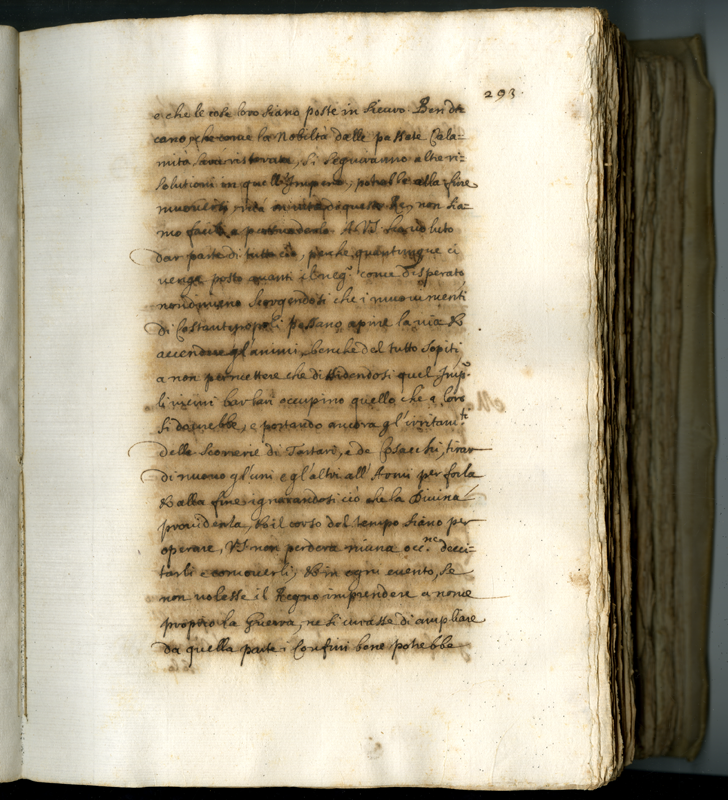 293.
e che le cose loro siano poste in sicuro. Ben dte
cano, che come la Nobiltà dalle passate Cala=
mità sarà ristorata, si seguiranno altre ri=
solutioni in quell'Impero, potrebbe alla fine
muoversi questo Re, non sia=
mo facili a persuaderlo. A VS si è voluto
dar parte di tutto ciò, perche quantunque ci
venga posto avanti il neg.º come disperato,
nondimeno scorgendosi che i movimenti
di Costantinopoli possano aprire la via &
accendere gl'animi, benche del tutto sopiti
a non permettere che dividendosi quel Imp.º
li vicini barbari occupino quello che a loro
si dovrebbe, e portando ancora gl'irritam.ti
delle Scorrerie di Tartari, e de Cosacchi, tirar
di nuovo gl'uni e gl'altri all'Armi per forza
& alla fine ignorandosi ciò che la Divina
providenza, & il corso del tempo siano per
operare, VS non perderà niuna occ.ne d'ecci=
tarli e comoverli, & in ogni evento, se
non volesse il Regno imprendere a nome
proprio la Guerra, ne si curasse di ampliare
da quella parte i Confini bene potrebbe